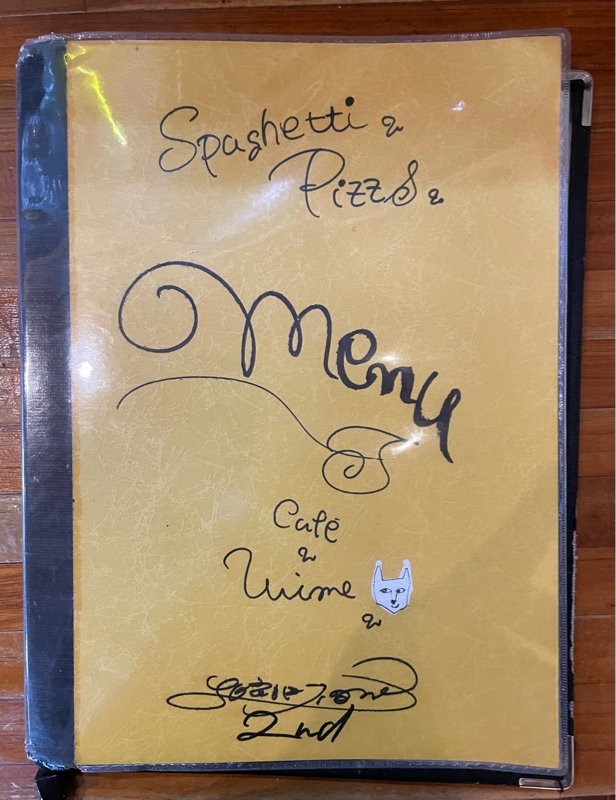 Spaghetti &
Pizza &
Menu
Cafe
&
Wine
&
2nd